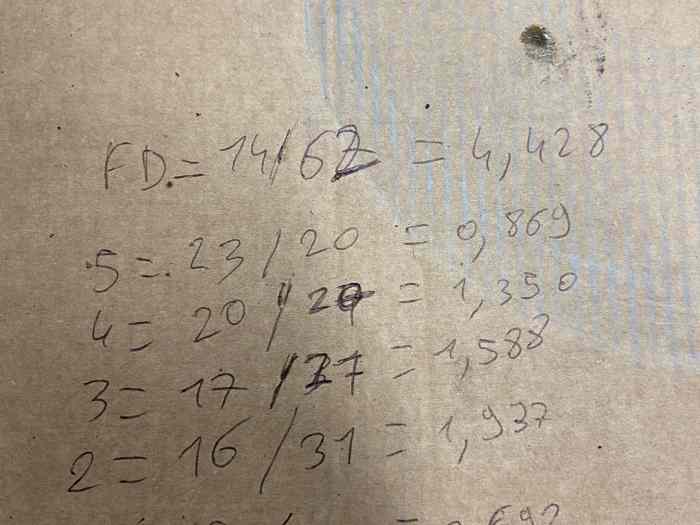 FD.= 14/62 = 4,428
5 = 23/20 = 0,869
4 = 20/27 = 1,350
3 = 17/27 = 1,588
2 = 16/31 = 1,937